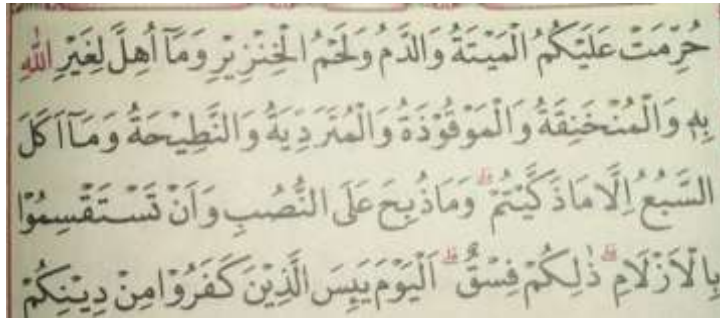 حُرِّمَتْ عَلَيْكُمُ الْمَيْتَةُ وَالدَّمُ وَلَحْمُ الْخِنْزِيْرِ وَمَآ اُهِلَّ لِغَيْرِ اللّٰهِ
بِهٖ وَالْمُنْخَنِقَةُ وَالْمَوْقُوْذَةُ وَالْمُتَرَدِّيَةُ وَالنَّطِيْحَةُ وَمَآ اَكَلَ
السَّبُعُ اِلَّا مَا ذَكَّيْتُمْ ۗ وَمَا ذُبِحَ عَلَى النُّصُبِ وَاَنْ تَسْتَقْسِمُوْا
بِالْاَزْلَامِ ۗ ذٰلِكُمْ فِسْقٌ ۗ اَلْيَوْمَ يَىِٕسَ الَّذِيْنَ كَفَرُوْا مِنْ دِيْنِكُمْ